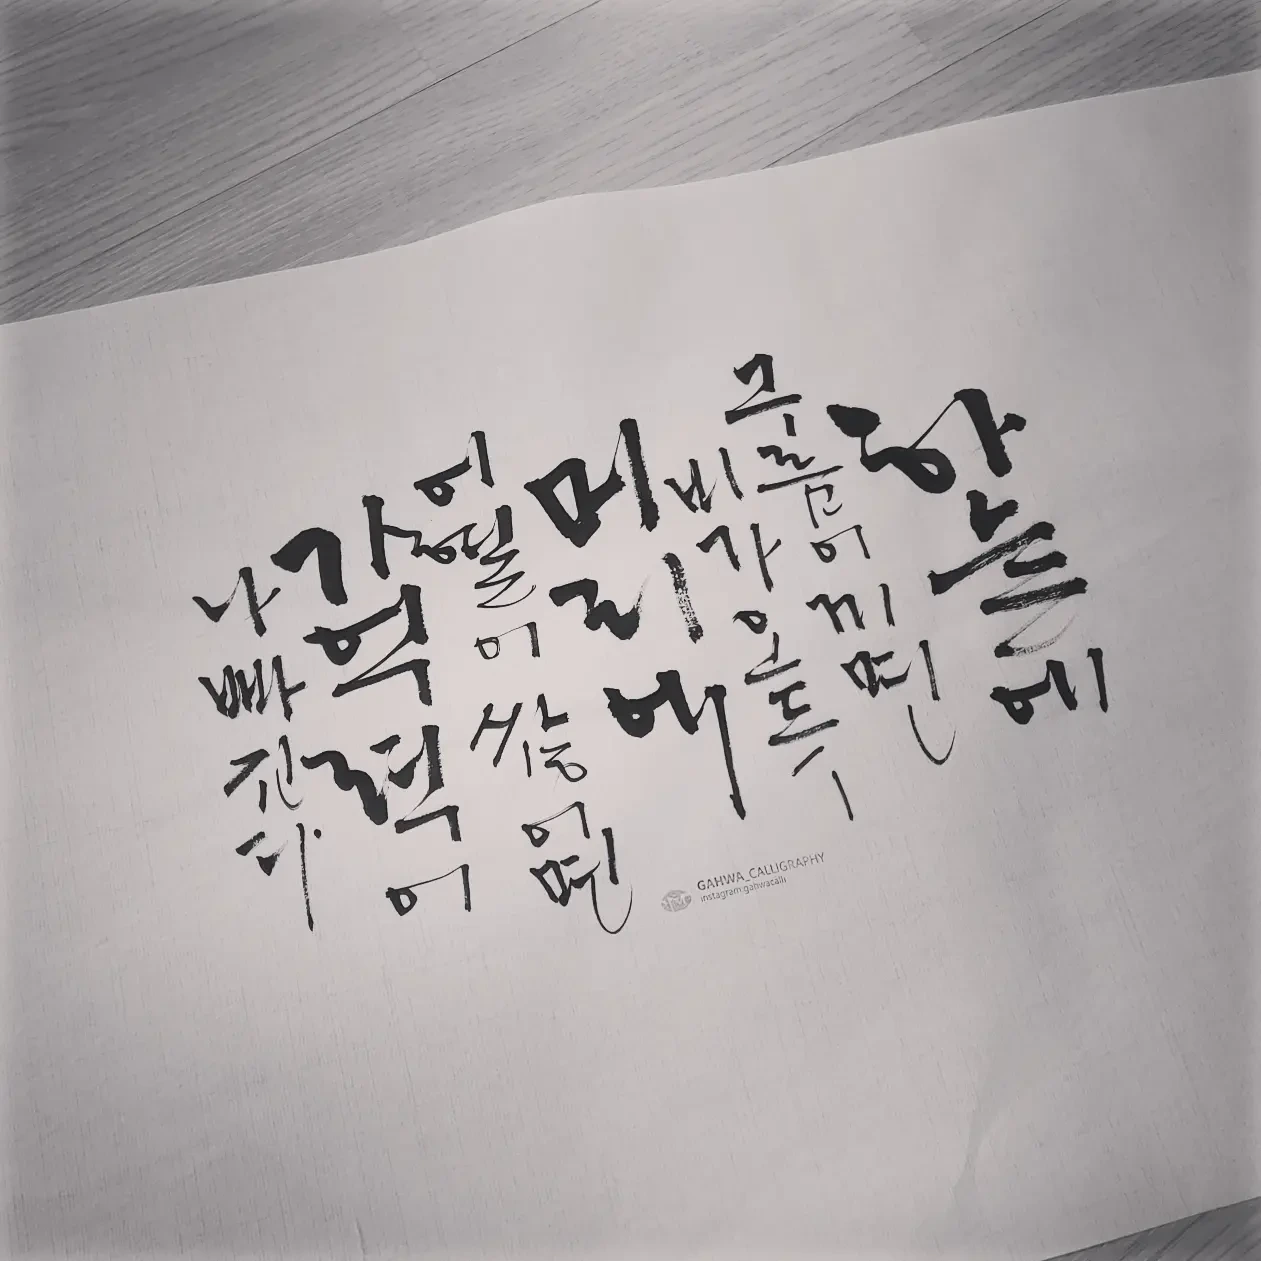 하늘에
구름이 끼면
비가 오듯
머리에
어혈이 쌓이면
기억력이
나빠진다
GAHWA_CALLIGRAPHY
instagram:gahwacalli